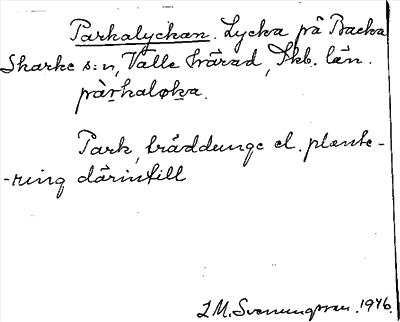 Parkalyckan. Lycka på Backa
Skarke s:n, Valle härad, Skb. län.
pàrkaløka.
Park, träddunge el. plante-
-ring därintill
I.M. Svenungsson. 1946.